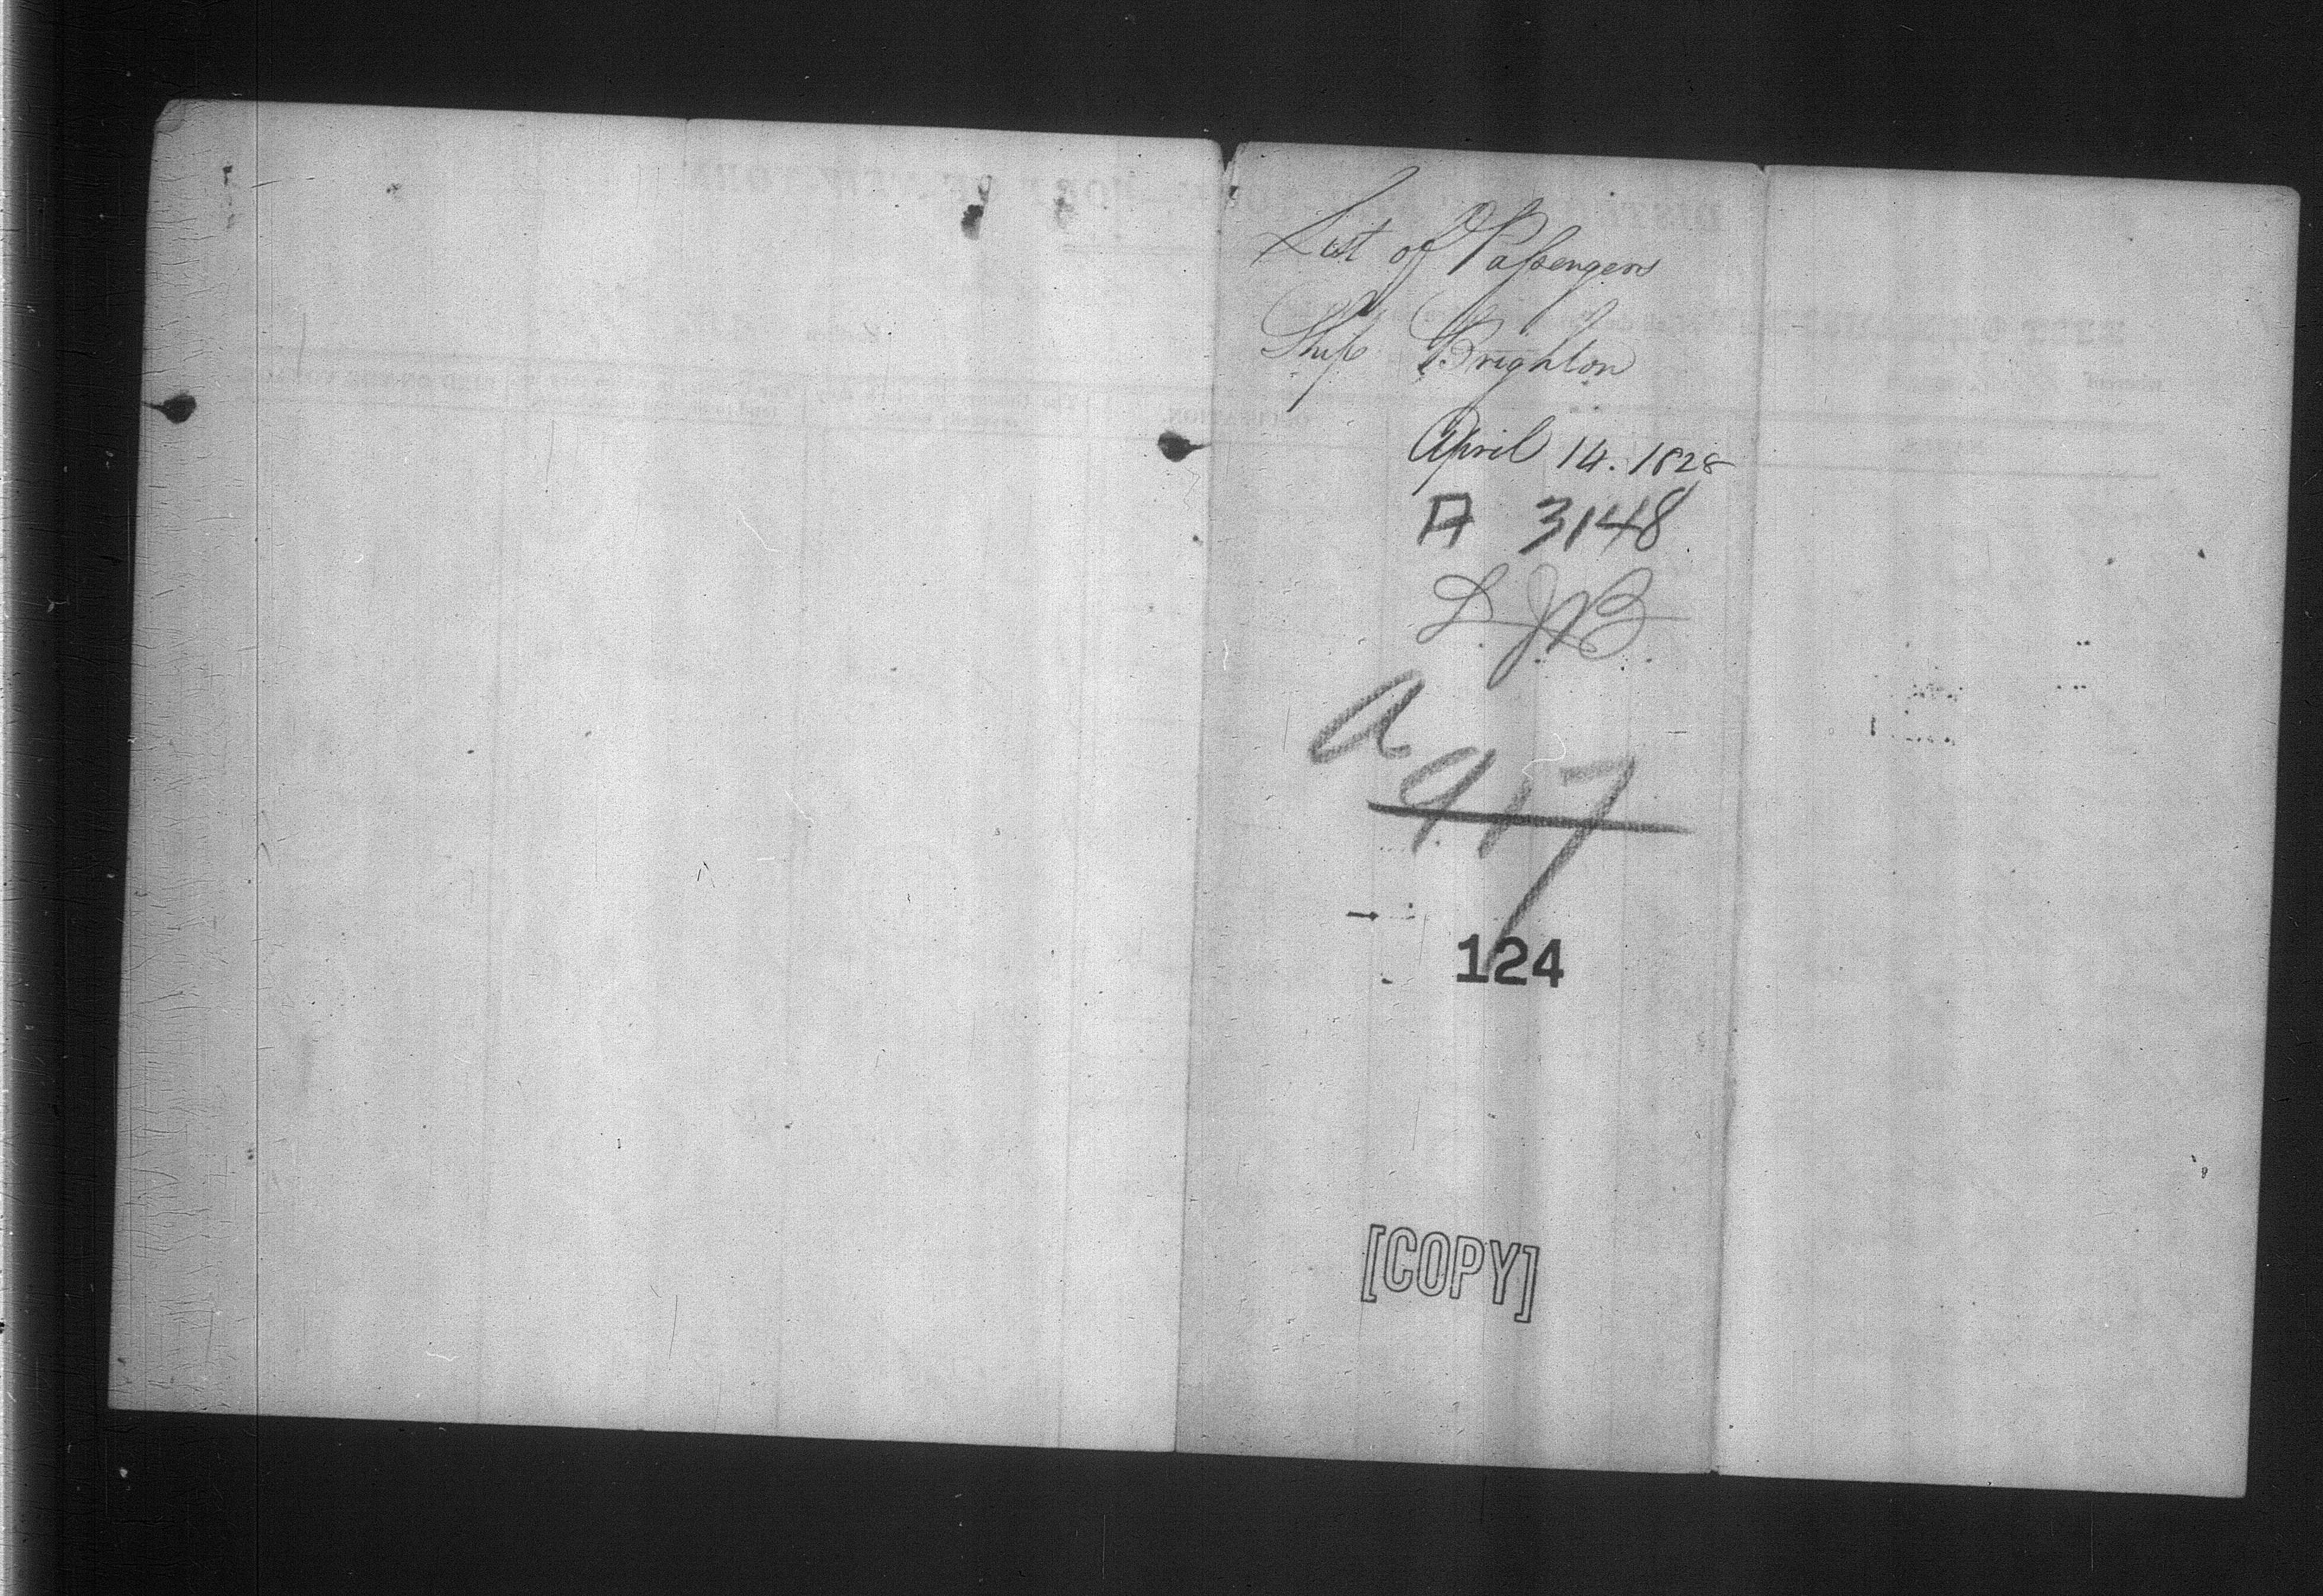 List of Passengers
Ship Brighton
April 14. 1828
A 3148
L. J. B.
a
917
124
[COPY]